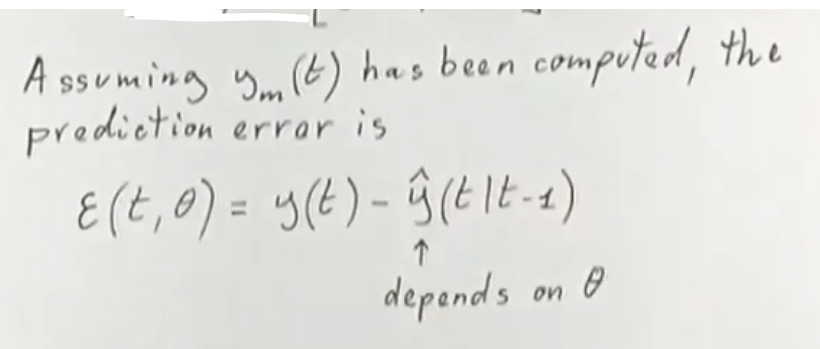 Assuming yₘ(t) has been computed, the
prediction error is
ε(t,θ) = y(t) - ŷ(t|t-1)
↑
depends on θ